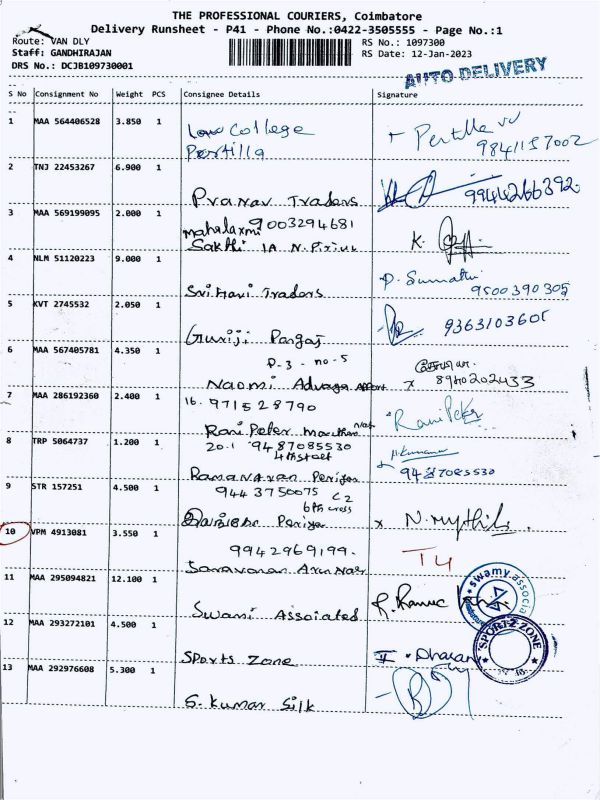 THE PROFESSIONAL COURIERS, Coimbatore
Delivery Runsheet - P41 - Phone No.:0422-3505555 - Page No.:1
Route: VAN DLY
RS No.: 1097300
Staff: GANDHIRAJAN
RS Date: 12-Jan-2023
DRS No.: DCJB109730001
AUTO DELIVERY
S No Consignment No Weight PCS Consignee Details Signature
1 MAA 564406528 3.850 1 Law College
Pertilla
9841157002
2 TNJ 22453267 6.900 1
Pranav Traders 9944266392
3 MAA 569199095 2.000 1 Mahalaxmi 9003294681
Sakthi 1A N.
K.
4 NLM 51120223 9.000 1
Sri Hari Traders
P. Sumathi
9500390305
5 KVT 2745532 2.050 1
Guruji
9363103605
6 MAA 567405781 4.350 1 P-3-no-5
Naomi
8940202433
7 MAA 286192360 2.400 1 16. 971528790
Rani Peter
Rani Peter
8 TRP 5064737 1.200 1 20.1 9487085530
4th street
9487085530
9 STR 157251 4.500 1 9443750075 C2
6th cross
N. Mythili
10 VPM 4913081 3.550 1
9942969199
Saravanan
11 MAA 295094821 12.100 1
Swami Assoiated
swamy associa
12 MAA 293272101 4.500 1
Sports Zone
Dharan
SPORTZ ZONE
13 MAA 292976608 5.300 1
S. Kumar Silk